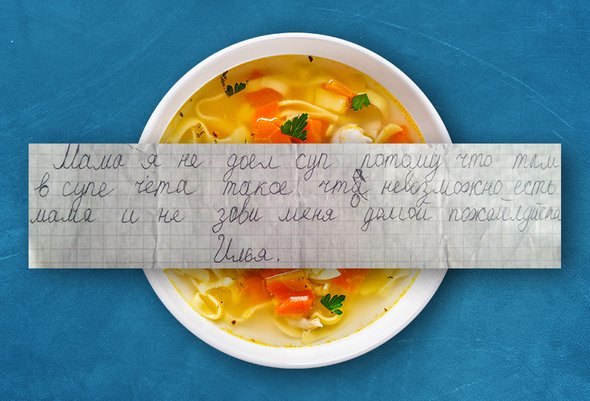 Мама я не доел суп потому что там
в супе чета такое что невозможно есть
мама и не зови меня домой пожайлуйста
Илья.